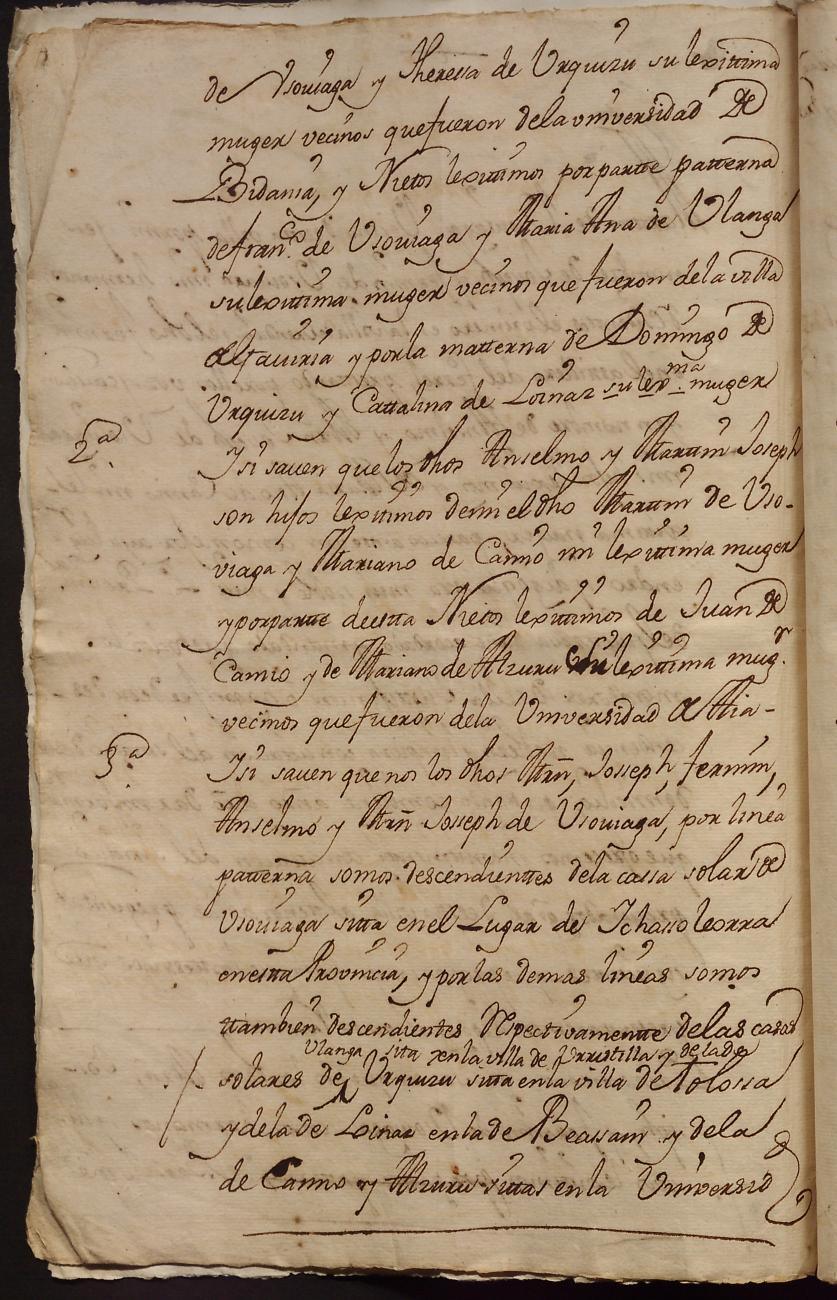 de Usoviaga y Theressa de Urquizu su lexittima
muger vecinos que fueron de la universidad de
Bidania, y Nietos lexittimos por partte patterna
de fran.co de Usoviaga y Maria Ana de Ulanga
su lexittima muger vecinos que fueron de la villa
y por la matterna de Domingo de
Urquizu y Cattalina de Loinaz su lex.ma muger
2.a
Y si saven que los dhos Anselmo y Martin Joseph
son hijos lexitimos de mi el dho Martin de Uso-
viaga y Mariana de Camio mi lexittima muger
y por partte de estta Nietos lexittimos de Juan de
Camio y de Mariana de Alzuru su lexittima mug.r
vecinos que fueron de la Universidad de Attia-
3.a
Y si saven que nos los dhos Mrn, Joseph, fermin,
Anselmo y Mrn Joseph de Usoviaga, por linea
patterna somos descendienttes de la cassa solar de
Usoviaga sitta en el Lugar de Ichasso leorra
en estta Provincia, y por las demas lineas somos
ttambien descendientes Respectivamentte de las casas
Ulanga sita en la villa de Urrestilla y de la de
solares de Urquizu sitta en la villa de Tolossa
y de la de Loinaz en la de Beassain y de la
de Camio y Alzuru sittas en la Universid